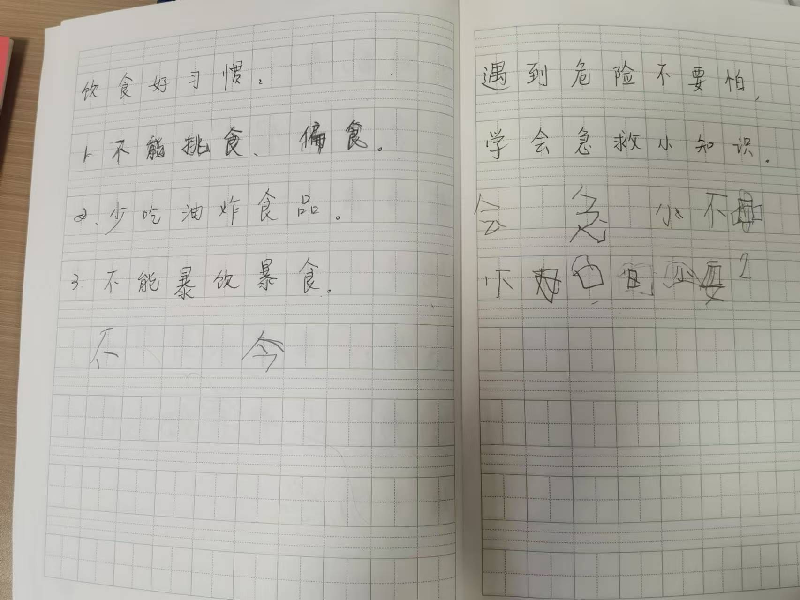 饮食好习惯。
1、不能挑食、偏食。
2、少吃油炸食品。
3、不能暴饮暴食。
不 今
遇到危险不要怕,
学会急救小知识。
会 急 小 不
不